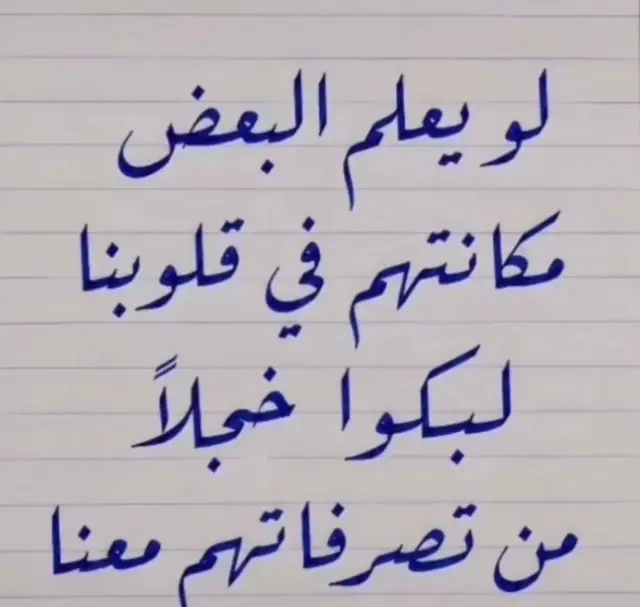 لو يعلم البعض
مكانتهم في قلوبنا
لبكوا خجلاً
من تصرفاتهم معنا